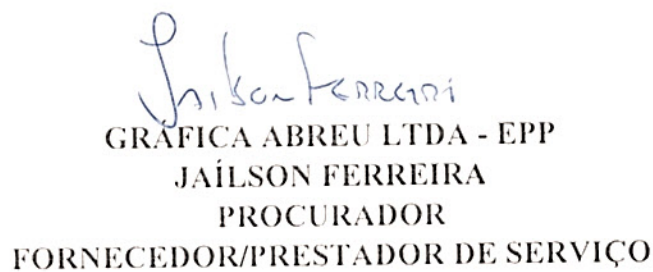 Jailson Ferreira
GRÁFICA ABREU LTDA - EPP
JAÍLSON FERREIRA
PROCURADOR
FORNECEDOR/PRESTADOR DE SERVIÇO